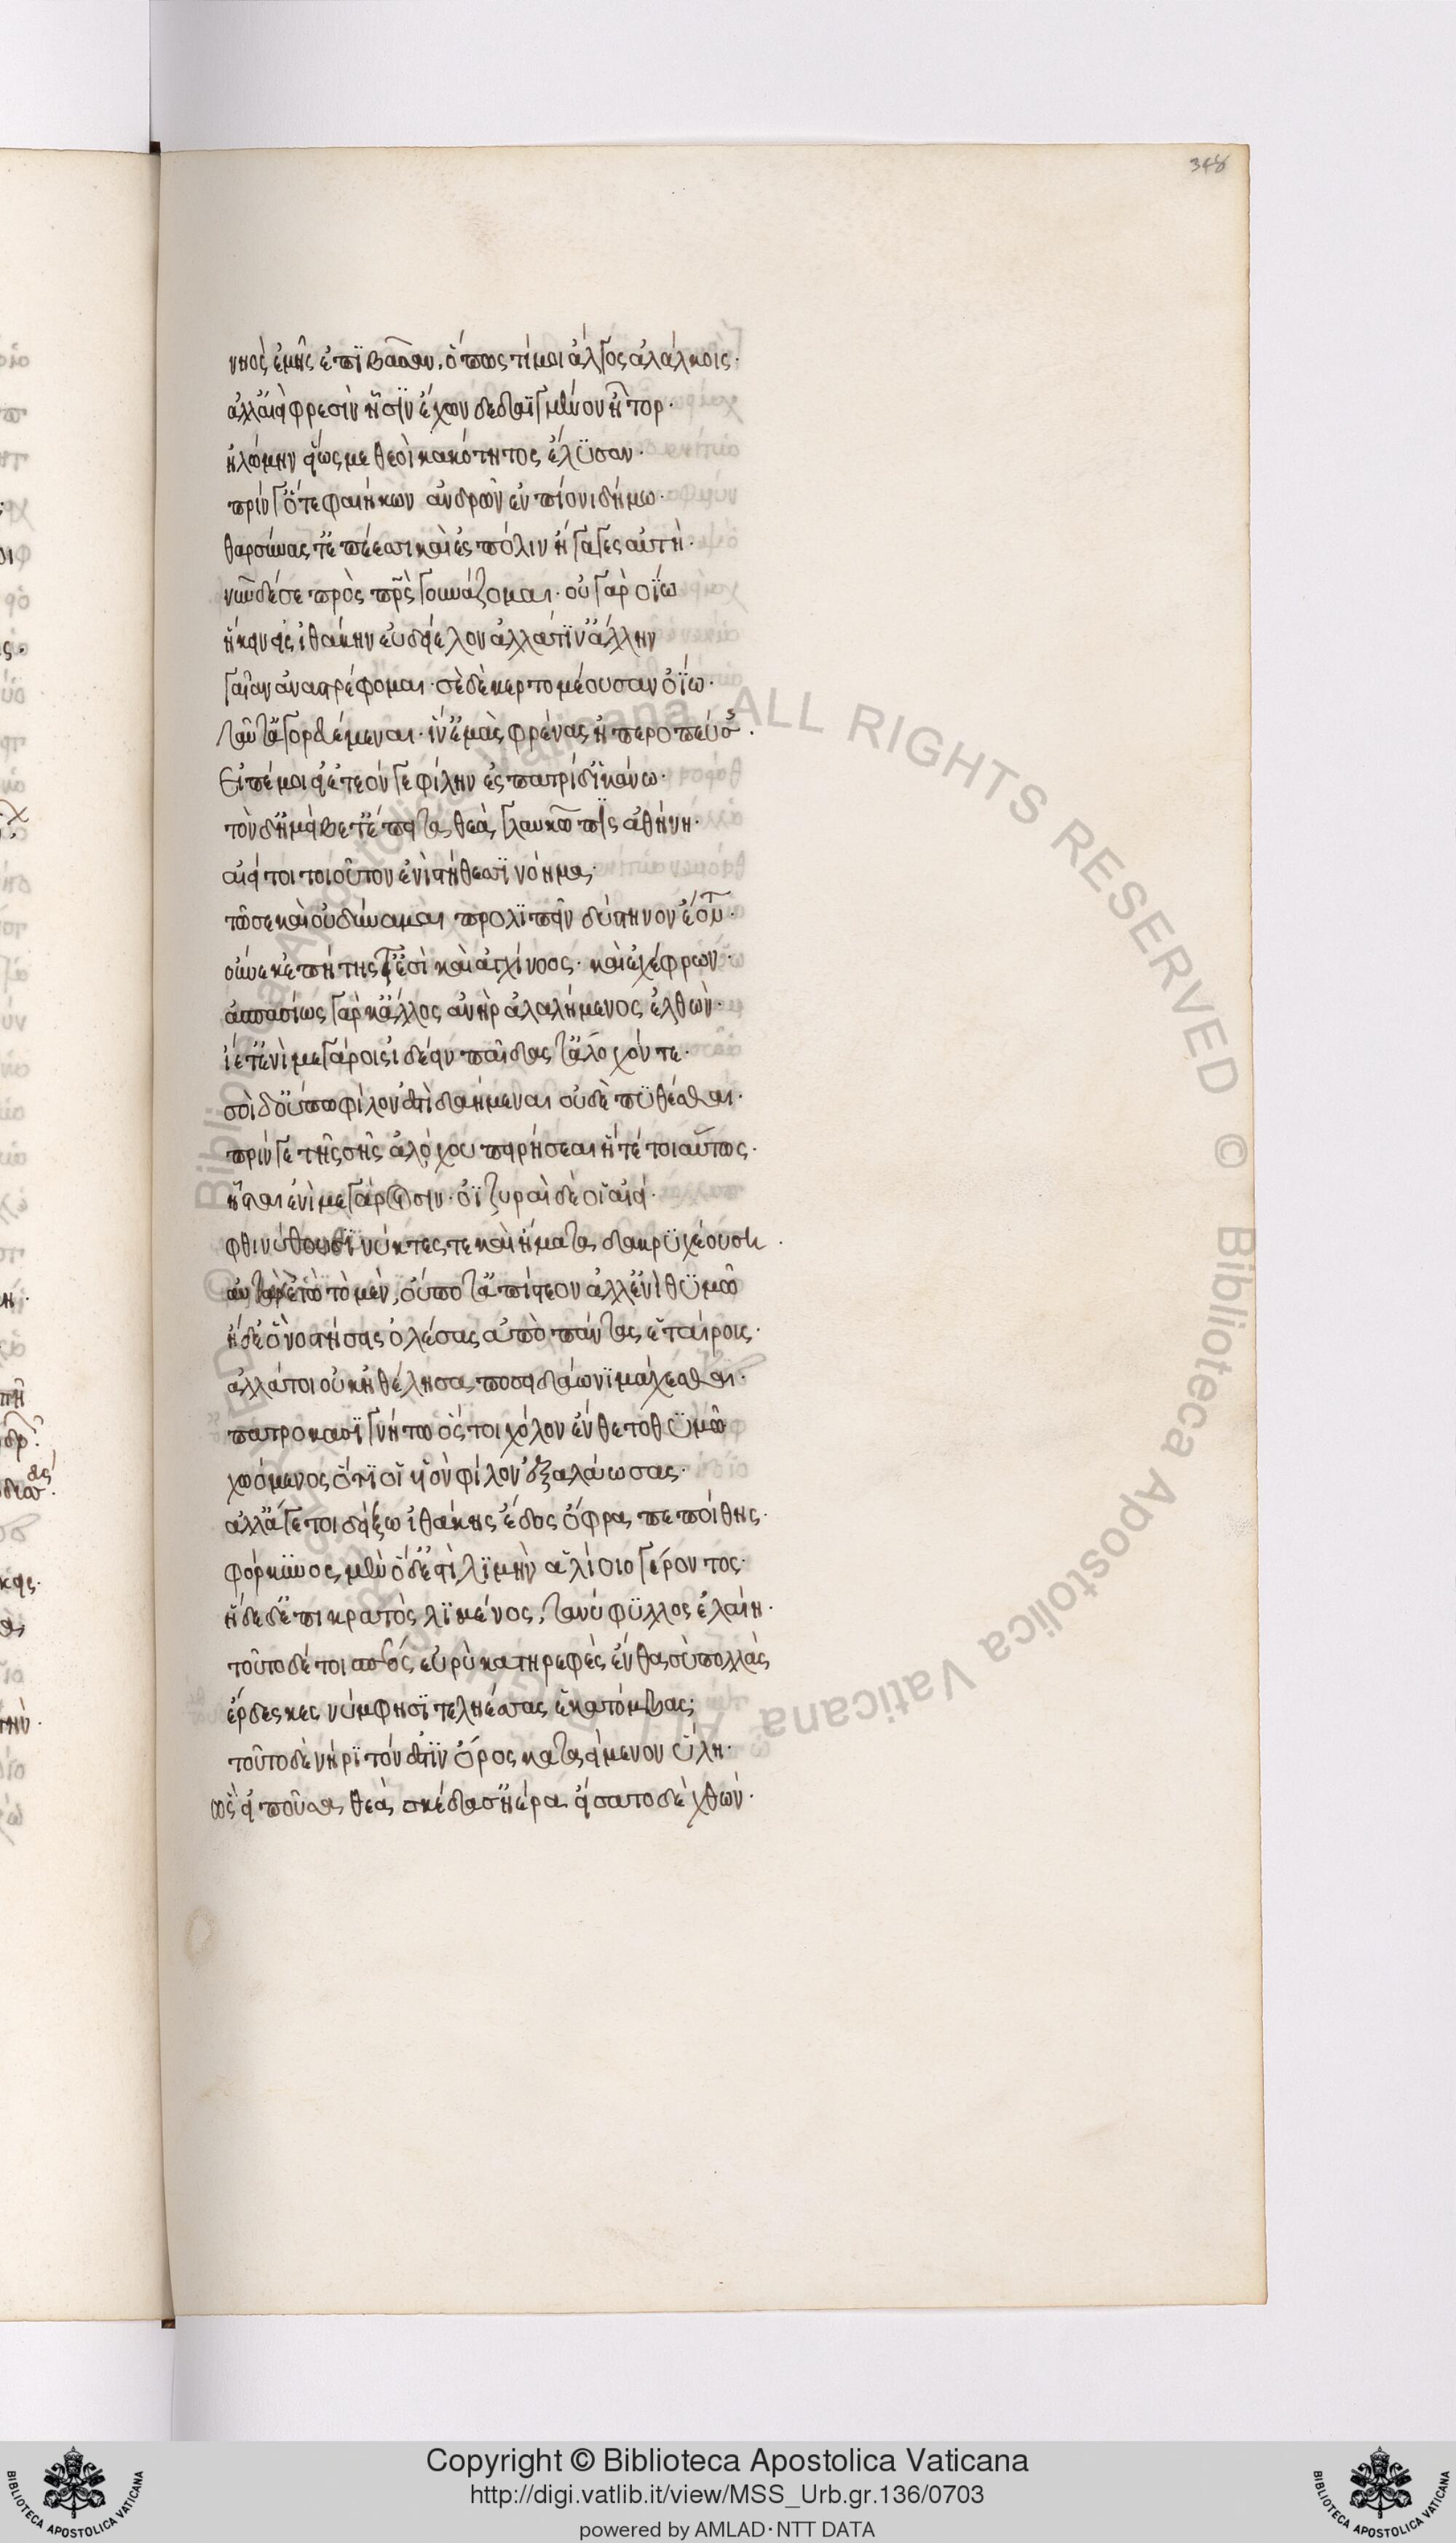 348
νηὸς ἐμῆς ἐπϊβᾶσαν, ὅπως τί μοι ἄλγος ἀλάλκοις·
ἀλλ' αἰεὶ φρεσὶν ἧσϊν ἔχων δεδαϊγμένον ἦτορ·
ἠλώμην εἵως με θεοὶ κακότητος ἔλϋσαν·
πρίν γ' ὅτε φαιήκων ἀνδρῶν ἐν πίονι δήμω·
θαρσύνας τ' ἐπέεσσι καὶ ἐς πόλιν ἤγαγες αὐτή·
νῦν δέ σε πρὸς πρς γουνάζομαι· οὐ γὰρ οἴω
ἥκειν εἰς ἰθάκην εὐδείελον ἀλλά τϊν' ἄλλην
γαῖαν ἀναστρέφομαι· σὲ δὲ κερτομέουσαν ὀΐω·
ταῦτ' ἀγορευέμεναι· ἵν' ἐμὰς φρένας ἠπεροπεύσ·
Εἰπέ μοι εἰ ἐτεόν γε φίλην ἐς πατρίδ' ϊκάνω·
τὸν δ' ἠμείβετ' ἔπειτα θεὰ γλαυκῶπϊς ἀθήνη·
αἰεί τοι τοιοῦτον ἐνὶ στήθεσϊ νόημα·
τῶ σε καὶ οὐ δύναμαι προλϊπεῖν δύστηνον ἐόντ·
οὕνεκ' ἐπητής τ' ἐσὶ καὶ ἀγχίνοος· καὶ ἐχέφρων·
ἀσπασίως γὰρ κ' ἄλλος ἀνὴρ ἀλαλήμενος ἐλθὼν·
ἵετ' ἐνὶ μεγάροις ἰδέειν παῖδας τ' ἄλοχόν τε·
σοὶ δ' οὔπω φίλον ἐστὶ δαήμεναι οὐδὲ πϋθέσθαι·
πρίν γε τῆς σῆς ἀλόχου πειρήσεαι ἥ τέ τοι αὔτως·
ἧσται ἐνὶ μεγάροισιν· ὀϊζυραὶ δὲ οἱ αἰεὶ·
φθινύθουσϊ νύκτες τε καὶ ἤματα δακρϋχεούση·
αὐτὰρ ἐγὼ τὸ μὲν, οὔποτ' ἀπίστεον ἀλλ' ἐνὶ θϋμῶ
ἤδε' ὃ νοστήσας ὀλέσας ἀπὸ πάντας ἑταίροις·
ἀλλά τοι οὐκ ἠθέλησα ποσειδάωνϊ μάχεσθαι·
πατροκασϊγνήτω ὅς τοι χόλον ἔνθετο θϋμῶ
χωόμενος ὅτϊ οἱ υἱὸν φίλον ἐξαλάωσας·
ἀλλ' ἄγε τοι δείξω ἰθάκης ἕδος ὄφρα πεποίθης·
φόρκϋνος μὲν ὅδ' ἐστὶ λϊμὴν ἁλίοιο γέροντος·
ἥδε δ' ἐπὶ κρατὸς λϊμένος, τανύφϋλλος ἐλαίη·
τοῦτο δέ τοι σπέος εὐρὺ κατηρεφὲς ἔνθα σὺ πολλὰς
ἔρδεσκες νύμφησϊ τεληέσσας ἑκατόμβας·
τοῦτο δὲ νήρϊτόν ἐστϊν ὄρος καταειμένον ὕλη·
ὣς εἰποῦσα θεὰ σκέδασ' ἠέρα εἴσατο δὲ χθών·
Copyright © Biblioteca Apostolica Vaticana
http://digi.vatlib.it/view/MSS_Urb.gr.136/0703
powered by AMLAD·NTT DATA